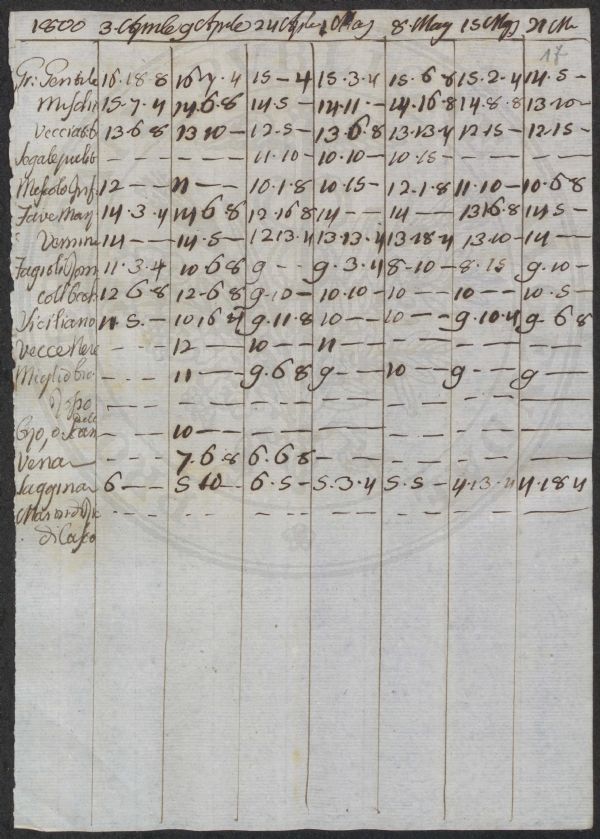 1800 3. Aprile 9 Aprile 24 Aprle 1 May 8. May 15 May 21 M
17
Gr: Gentile 16.18.8 16 7.4 15 — 4 15.3.4 15.6.8 15.2.4 14.5 —
Mischio 15.7.4 14.6.8 14.5 — 14.11 — 14.16.8 14.8.8 13.10 —
Vecciato 13.6.8 13 10 — 12.5 — 13.6.8 13.13.4 12.15 — 12.15 —
Segale — — — — — — 11.10 — 10.10 — 10.15 — — — — — — —
Mescolo 12 — — 11 — — 10.1.8 10.15 — 12.1.8 11.10 — 10.6.8
Fave Mag 14.3.4 14.6.8 12.16.8 14 — — 14 — — 13 16.8 14.5 —
Vernin 14 — — 14.5 — 12 13.4 13.13.4 13.18.4 13.10 — 14 —
Fagioli 11.3.4 10.6.8 9 — — 9.3.4 8-10 — 8.15 9.10 —
coll'occh 12.6.8 12.6.8 9.10 — 10.10 — 10 — — 10 — — 10.5 —
Siciliano 11.5. — 10 16 4 9.11.8 10 — — 10 — — 9.10.4 9.6.8
Vecce Nere — — — 12 — — 10 — — 11 — — — — — — — — —
Miglio — — — 11 — — 9.6.8 9 — — 10 — — 9 — — 9 — —
— — — — — — — — — — — — — — — — — — —
— — — 10 — — — — — — — — — — — — — — —
Vena — — — — 7.6.8 6.6.8 — — — — — — — — — — —
Saggina 6 — — 5 10 — 6.5 — 5.3.4 5.5 — 4.13.4 4.18 4
— — — — — — — — — — — — — — — — — — —